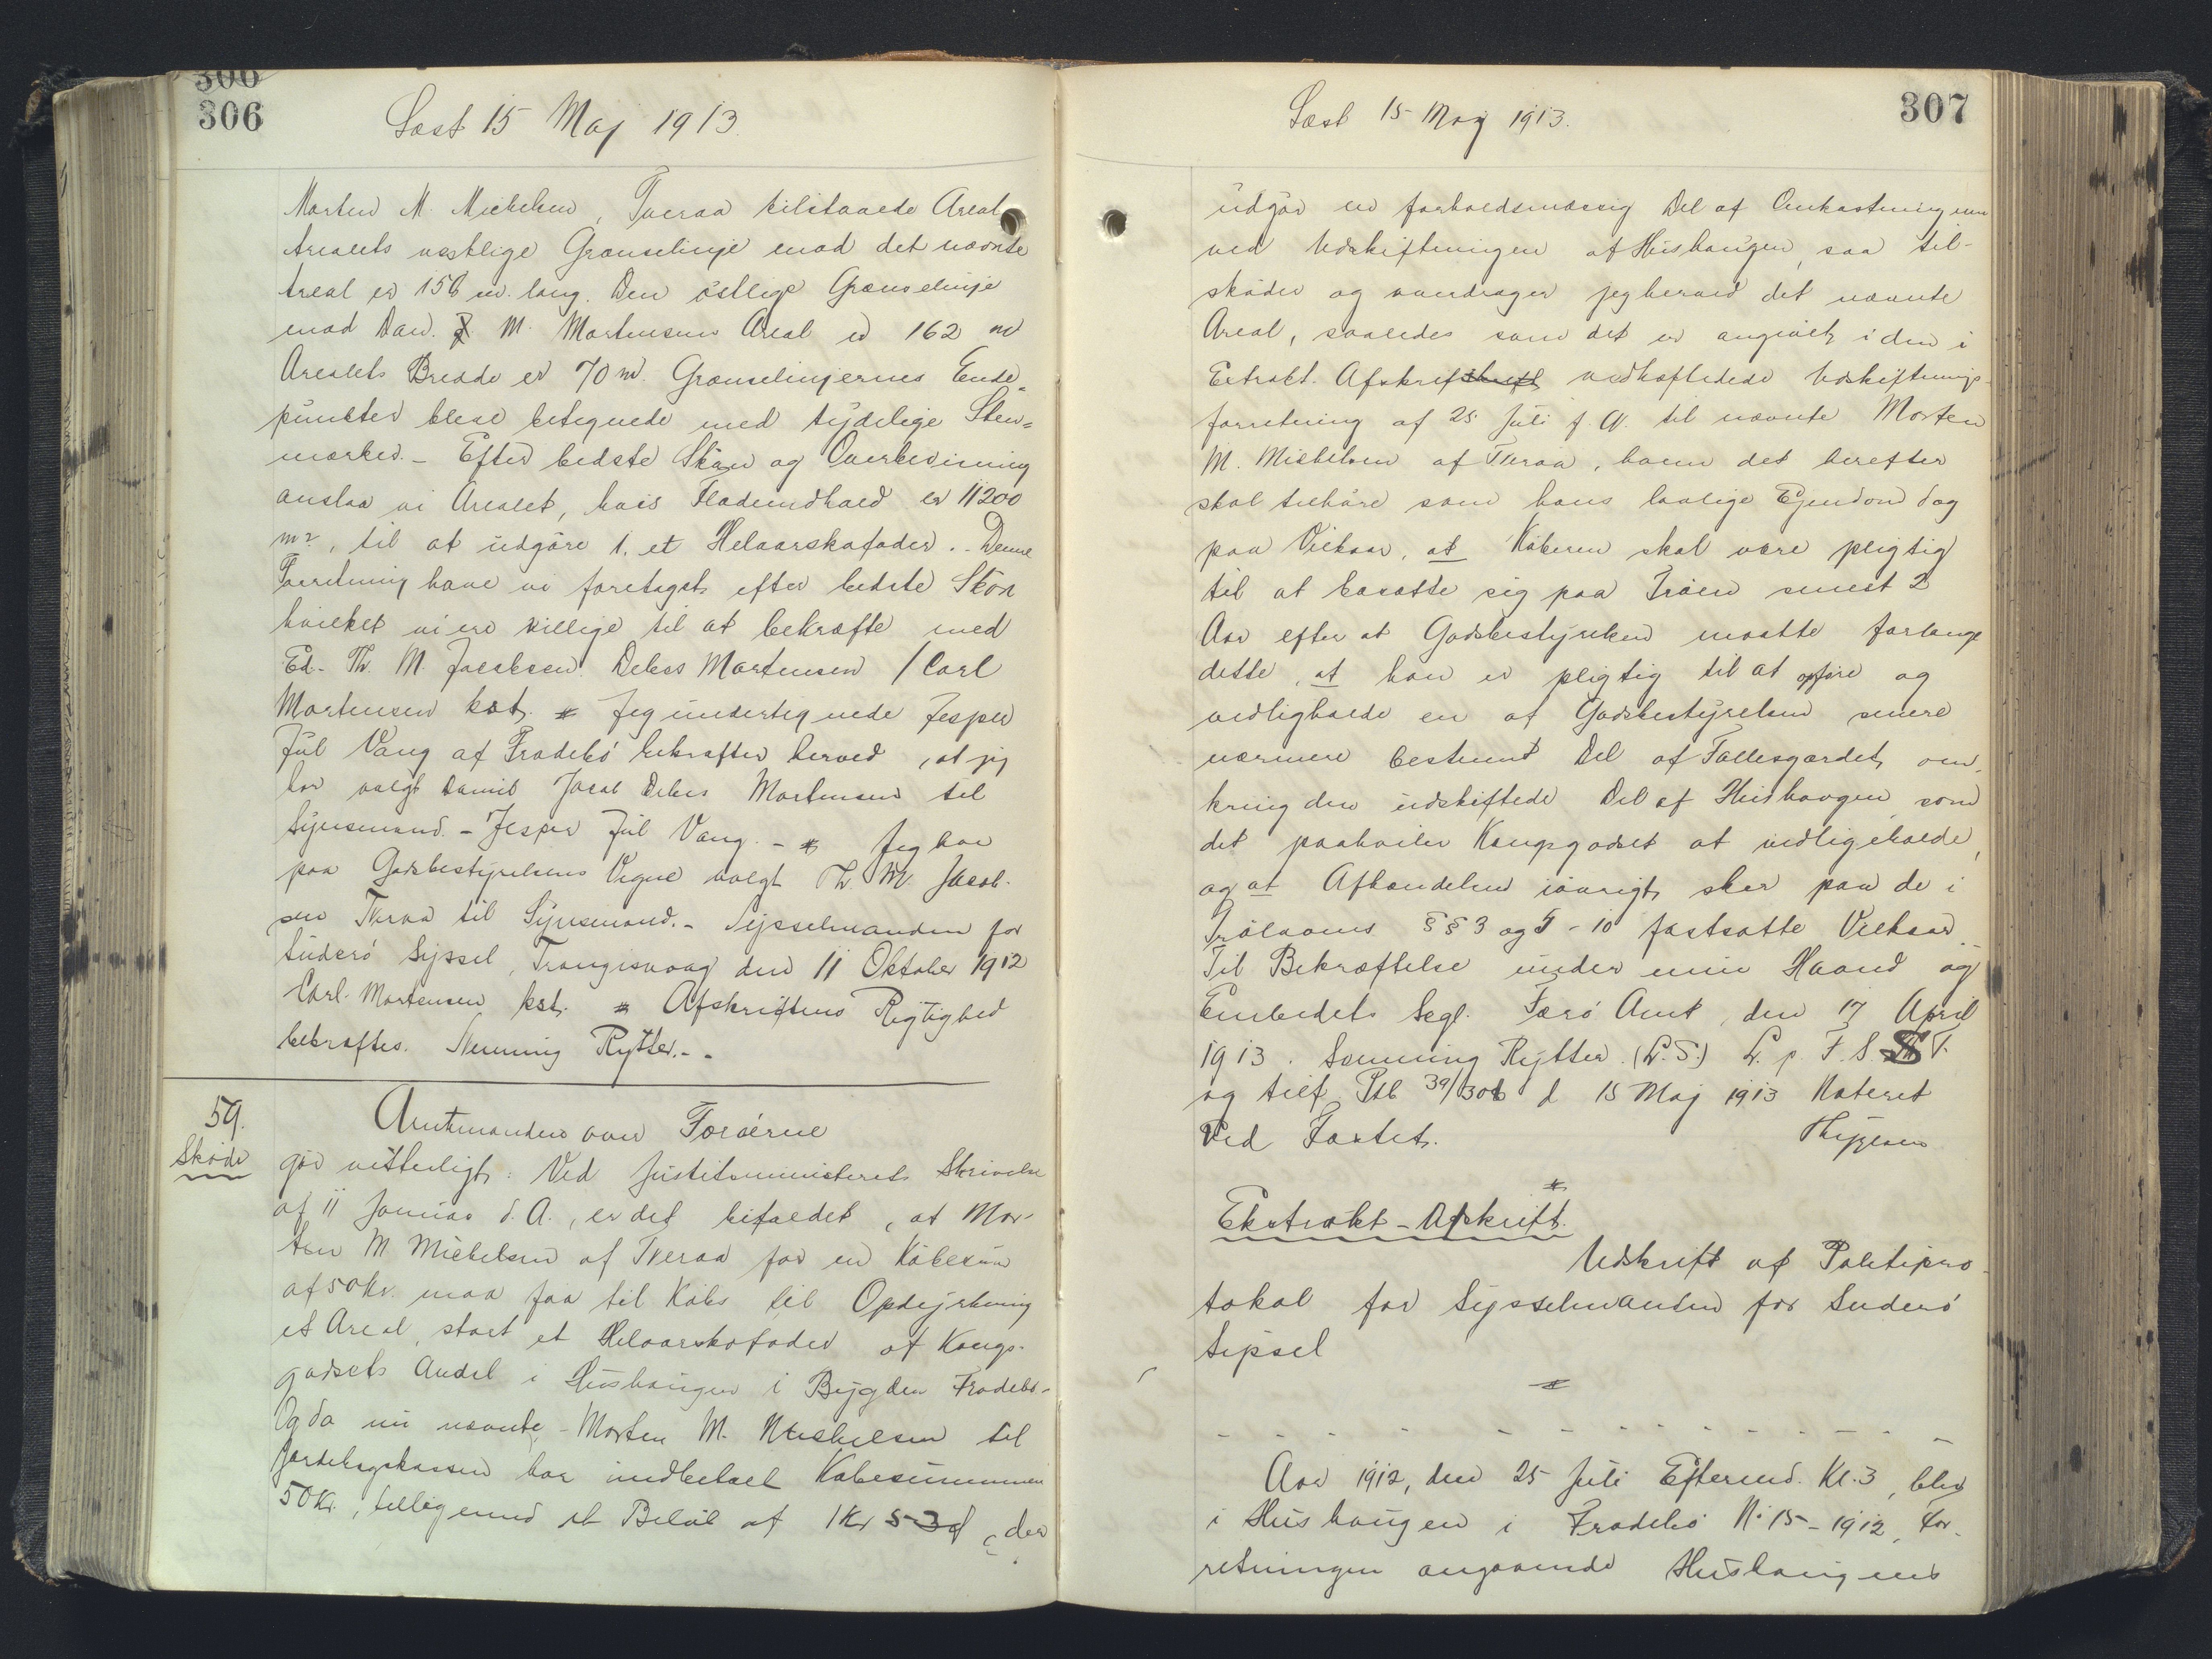 306
306
Læst 15 Maj 1913.
Morten M. Michelsen, Tveraa tilstaaede Areal
Arealets vestlige Grænselinje mod det nævnte
Areal er 156 m. lang. Den østlige Grænselinje
mod Dan. J. M. Mortensens Areal er 162 m
Arealets Bredde er 70 m. Grænselinjernes Ende-
punkter bleve betegnede med tydelige Sten-
mærker. - Efter bedste Skøn og Overbevisning
anslaa vi Arealet, hvis Fladeindhold er 11200
m², til at udgøre 1. et Helaarskofoder. - Denne
Forretning have vi foretaget efter bedste Skøn
hvilket vi ere villige til at bekræfte med
Ed. Th. M. Jacobsen. Debes Mortensen / Carl
Mortensen kst. * Jeg undertegnede Jesper
Jul Vang af Frodebø bekræfter herved, at jeg
har valgt Daniel Jacob Debes Mortensen til
Synsmand. - Jesper Jul Vang. - * Jeg har
paa Godsbestyrelsens Vegne valgt Th. M. Jacob-
sen Tveraa til Synsmand. - Sysselmanden for
Suderø Syssel, Trangisvaag den 11 Oktober 1912
Carl Mortensen kst. * Afskriftens Rigtighed
bekræftes. Svenning Rytter. - .
59.
Skøde
Amtmanden over Færøerne
gør vitterligt: Ved Justitsministeriets Skrivelse
af 11 Januar d. A., er det bifaldet, at Mor-
ten M Michelsen af Tveraa for en Købesum
af 50 Kr. maa faa til Købs til Opdyrkning
et Areal, stort et Helaarskofoder af Kongs-
godsets Andel i Hushaugen i Bygden Frodebø -
Og da nu nævnte Morten M. Michelsen til
Jordebogskassen har indbetalt Købesummen
50 Kr., tilligemed et Beløb af 1 Kr 53 Ø, der
307
Læst 15 Maj 1913.
udgør en forholdsmæssig Del af Omkostningerne
ved Udskiftningen af Hushaugen, saa til-
skøder og overdrager jeg herved det nævnte
Areal, saaledes som det er angivet i den i
Extrakt. Afskrift vedhæftedede Udskiftnings-
forretning af 25 Juli f. A. til nævnte Morten
M. Michelsen af Tveraa, hvem det herefter
skal tilhøre som hans lovlige Ejendom dog
paa Vilkaar, at Køberen skal være pligtig
til at bosætte sig paa Trøen senest 2
Aar efter at Godsbestyrelsen maatte forlange
dette, at han er pligtig til at opføre og
vedligholde en af Godsbestyrelsen senere
nærmere bestemt Del af Fællesgærdet om-
kring den udskiftede Del af Hushaugen, som
det paahviler Kongsgodset at vedligeholde,
og at Afhændelsen iøvrigt sker paa de i
Trølovens §§ 3 og 5 - 10 fastsatte Vilkaar.
Til Bekræftelse under min Haand og
Embedets Segl. Færø Amt, den 17 April
1913. Svenning Rytter. (L. S.) L. p. F. S. S T.
og tilf. Ptb 39/306 d 15 Maj 1913 Noteret
Ved Fæstet.
*
Ekstrakt - Afskrift.
Udskrift af Politipro-
tokol for Sysselmanden for Suderø
Syssel
*
- - - - - - - - - - - - - -
Aar 1912, den 25 Juli Eftermd. Kl. 3, blev
i Hushaugen i Frodebø No 15 - 1912, For-
retningen angaaende Hushaugens